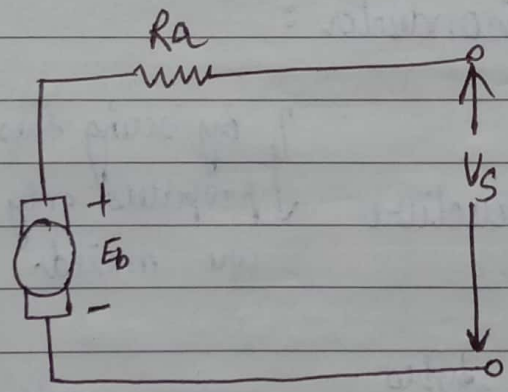 Ra
+
Eb
-
Vs